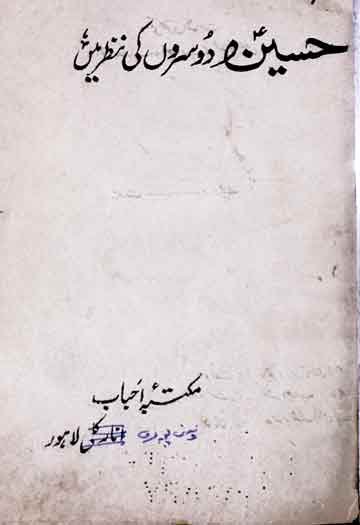 حسینؑ دوسروں کی نظر میں
مکتبۂ احباب
انارکلی لاہور
وسن پورہ